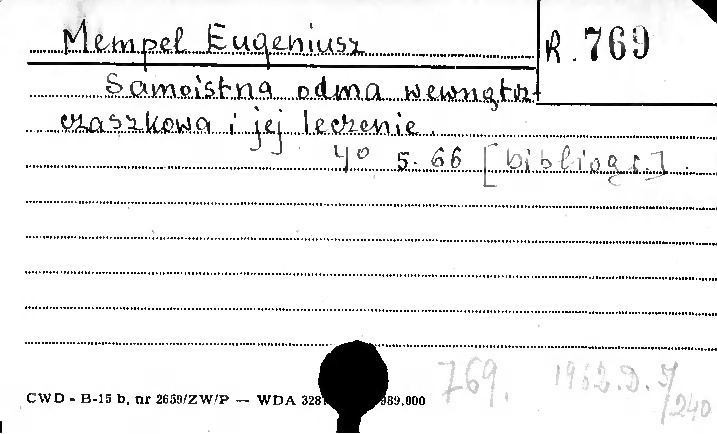 Mempel Eugeniusz
R. 769
Samoistna odma wewnątrz-
czaszkowa i jej leczenie.
4° s. 66 [bibliogr.].
769. 1962.D. 5/240
CWD - B-15 b, nr 2659/ZW/P — WDA 328 989.000